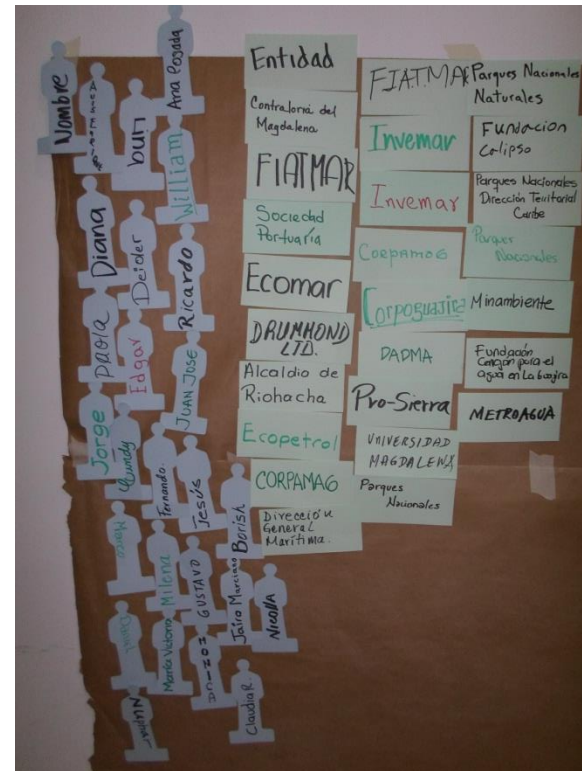 Nombre
buri
Ana Pozada
Diana
Deider
William
Paola
Edgar
Ricardo
Jorge
Yundy
JUAN JOSE
Fernando.
Jesús
Marco
Milena
GUSTAVO
Borish
Jairo Marciano
Daniel
María Victoria
Nicolla
Claudia R.
Entidad
Contraloria del
Magdalena
FIATMAR
Sociedad
Portuaria
Ecomar
DRUMMOND
LTD.
Alcaldio de
Riohacha
Ecopetrol
CORPAMAG
Dirección
General
Marítima.
FIATMAR
Invemar
Invemar
CORPAMOG
Corpoguajira
DADMA
Pro-Sierra
UNIVERSIDAD
MAGDALENA
Parques
Nacionales
Parques Nacionales
Naturales
Fundacion
Calipso
Parques Nacionales
Dirección Territorial
Caribe
Parques
Nacionales
Minambiente
Fundación
Cerrejón para el
agua en La Guajira
METROAGUA